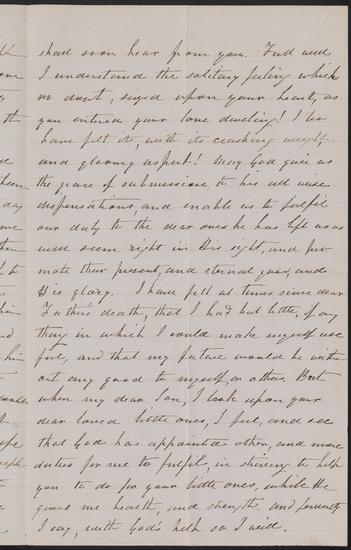 shall soon hear from you. Full well
I understand the solitary feeling which
no doubt, seized upon your heart, as
you entered your lone dwelling! I too
have felt it, with its crushing weight,
and gloomy aspect! May God give us
the grace of submission, to his all wise
dispensations, and enable us to fulfil
our duty to the dear ones he has left us as
will seem right in His sight, and pro
mote their present, and eternal good, and
His glory. I have felt at times since dear
Father's death, that I had but little, if any
thing in which I could make myself use
ful, and that my future would be with
out any good to myself, or others. But
when my dear Son, I look upon your
dear loved little ones, I feel, and see
that God has appointed other, and more
duties for me to fulfil, in striving to help
you to do for your little ones, while He
gives me health, and strength. and fervently
I say, with God's help so I will.